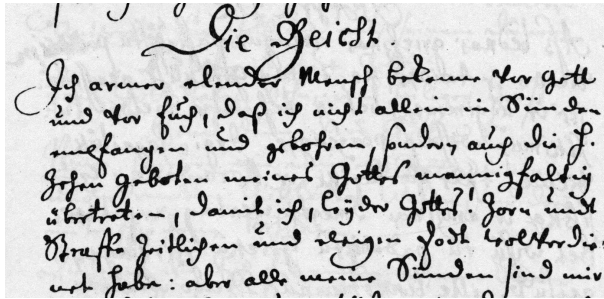 Die Beicht.
Ich armer elender Mensch bekenne vor Gott
und vor Euch, daß ich nicht allein in Sünden
empfangen und gebohren, sondern auch die H.
Zehen Geboten meines Gottes mannigfaltig
übertreten, damit ich, leÿder Gottes! Zorn undt
Straffe Zeitlichen und ewigen Todt wolverdie-
net habe: aber alle meine Sünden sind mir